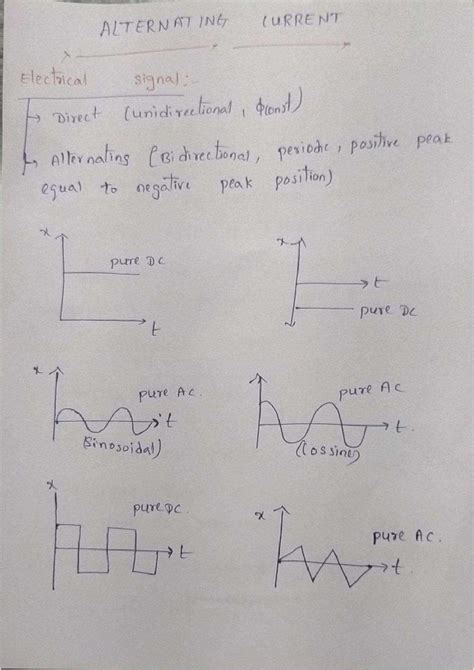 ALTERNATING CURRENT
Electrical signal:-
→ Direct (unidirectional, ϕconst)
→ Alternating (Bidirectional, periodic, positive peak
equal to negative peak position)
x pure DC t
x t pure DC
x pure AC. t (Sinosoidal)
pure AC t. (Cossine)
x pure DC. t
x pure AC. t.